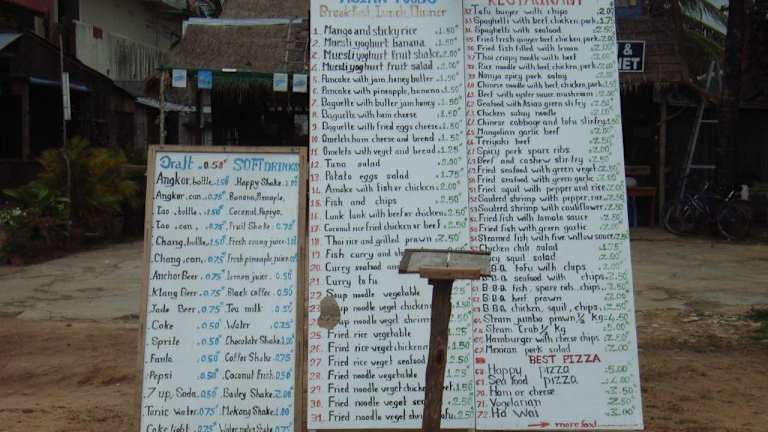 Draft 0.50 SOFT DRINKS
Angkor, bottle. 1.50 Happy Shake. 1.00
Angkor, can. 0.75 Banana, Pineapple,
Tao, bottle. 1.50 Coconut, Papaya.
Tao, can. 0.75 Fruit Shake
Chang, bottle. 1.50 Fresh orang juice
Chang, can. 0.75 Fresh pineapple, juice
Anchor Beer. 0.75 Lemon juice. 0.50
Klang Beer. 0.75 Black coffee. 0.50
Jade Beer. 0.75 Tea milk. 0.50
Coke 0.50 Water 0.25
Sprite 0.50 Chocolate Shake
Fanta 0.50 Coffee Shake
Pepsi 0.50 Coconut Fresh
7 up, Soda. 0.50 Bailey Shake.
Tonic Water. 0.75 Mekong Shake.
Coke light. 0.75 Water melon Shake
ASIAN FOODS
Breakfast, Lunch, Dinner
1. Mango and sticky rice 1.50
2. Muesli yoghurt banana 1.50
3. Muesli yoghurt fruit shake 2.00
4. Muesli yoghurt fruit salad 2.00
5. Pancake with jam, honey, butter 1.50
6. Pancake with pineapple, banana 1.50
7. Baguette with butter jam honey 1.50
8. Baguette with ham cheese 1.50
9. Baguette with fried eggs cheese 1.50
10. Omelets ham cheese and bread 1.50
11. Omelets with veget and bread 1.25
12. Tuna salad 2.00
13. Potato eggs salad 1.75
14. Amoke with fish or chicken 2.00
15. Fish and chips 2.50
16. Lunk lank with beef or chicken 2.50
17. Coconut rice fried chicken or beef
18. Thai rice and grilled prawn 2.50
19. Fish curry and
20. Curry seafood
21. Curry tofu
22. Soup noodle vegetable
23. Soup noodle veget chicken
24. Soup noodle veget shrimp
25. Fried rice vegetable 1.25
26. Fried rice veget chicken
27. Fried rice veget seafood 2.50
28. Fried noodle vegetable 1.25
29. Fried noodle veget chicken beef
30. Fried noodle veget sea
31. Fried noodle veget shrimp tofu 2.50
RESTAURANT
32. Tofu burger with chips 2.00
33. Spaghetti with beef, chicken, pork. 1.75
34. Spaghetti with seafood 2.50
35. Fried fresh ginger beef, chicken, pork. 2.00
36. Fried fish filled with lemon 2.50
37. Thai crispy noodle with beef 2.00
38. Rice noodle with beef, chicken, pork 2.00
39. Nonya spicy pork satay 2.00
40. Chinese noodle with beef, chicken, pork
Beef with oyster sauce mushroom
42. Seafood with Asian green stir fry 2.50
43. Chicken satay noodle 2.00
44. Chinese cabbage and tofu stir fry
45. Mongolian garlic beef 2.00
46. Teriyaki beef 2.50
47. Spicy pork spare ribs 2.00
Beef and cashew stir-fry 2.50
Fried seafood with green veget 2.50
50. Fried seafood with green garlic 2.50
51. Fried squit with pepper and rice 2.00
52. Sauteed shrimp with pepper, rice 2.50
53. Sauteed shrimp with cauliflower 2.50
54. Fried fish with tomato sauce 2.50
55. Fried fish with green garlic 2.00
56. Steamed fish with five willow sauce 2.50
57. Chicken chili salad 1.75
Spicy squid salad 2.00
B.B.Q tofu with chips 2.00
B.B.Q seafood with chips 2.50
B.B.Q fish, spare ribs, chips 2.50
B.B.Q beef prawn 2.00
B.B.Q chicken, squit, chips 2.50
Steam jumbo prawn ½ kg 4.50
65. Steam Crab ½ kg 5.00
66. Hamburger with cheese chips 2.50
67. Mexican pork salad 2.00
BEST PIZZA
68. Happy pizza 5.00
69. Sea food pizza 4.00
70. Ham or cheese 3.50
71. Vegetarian 2.50
72. Ha Wai 3.00
more food
&
NET